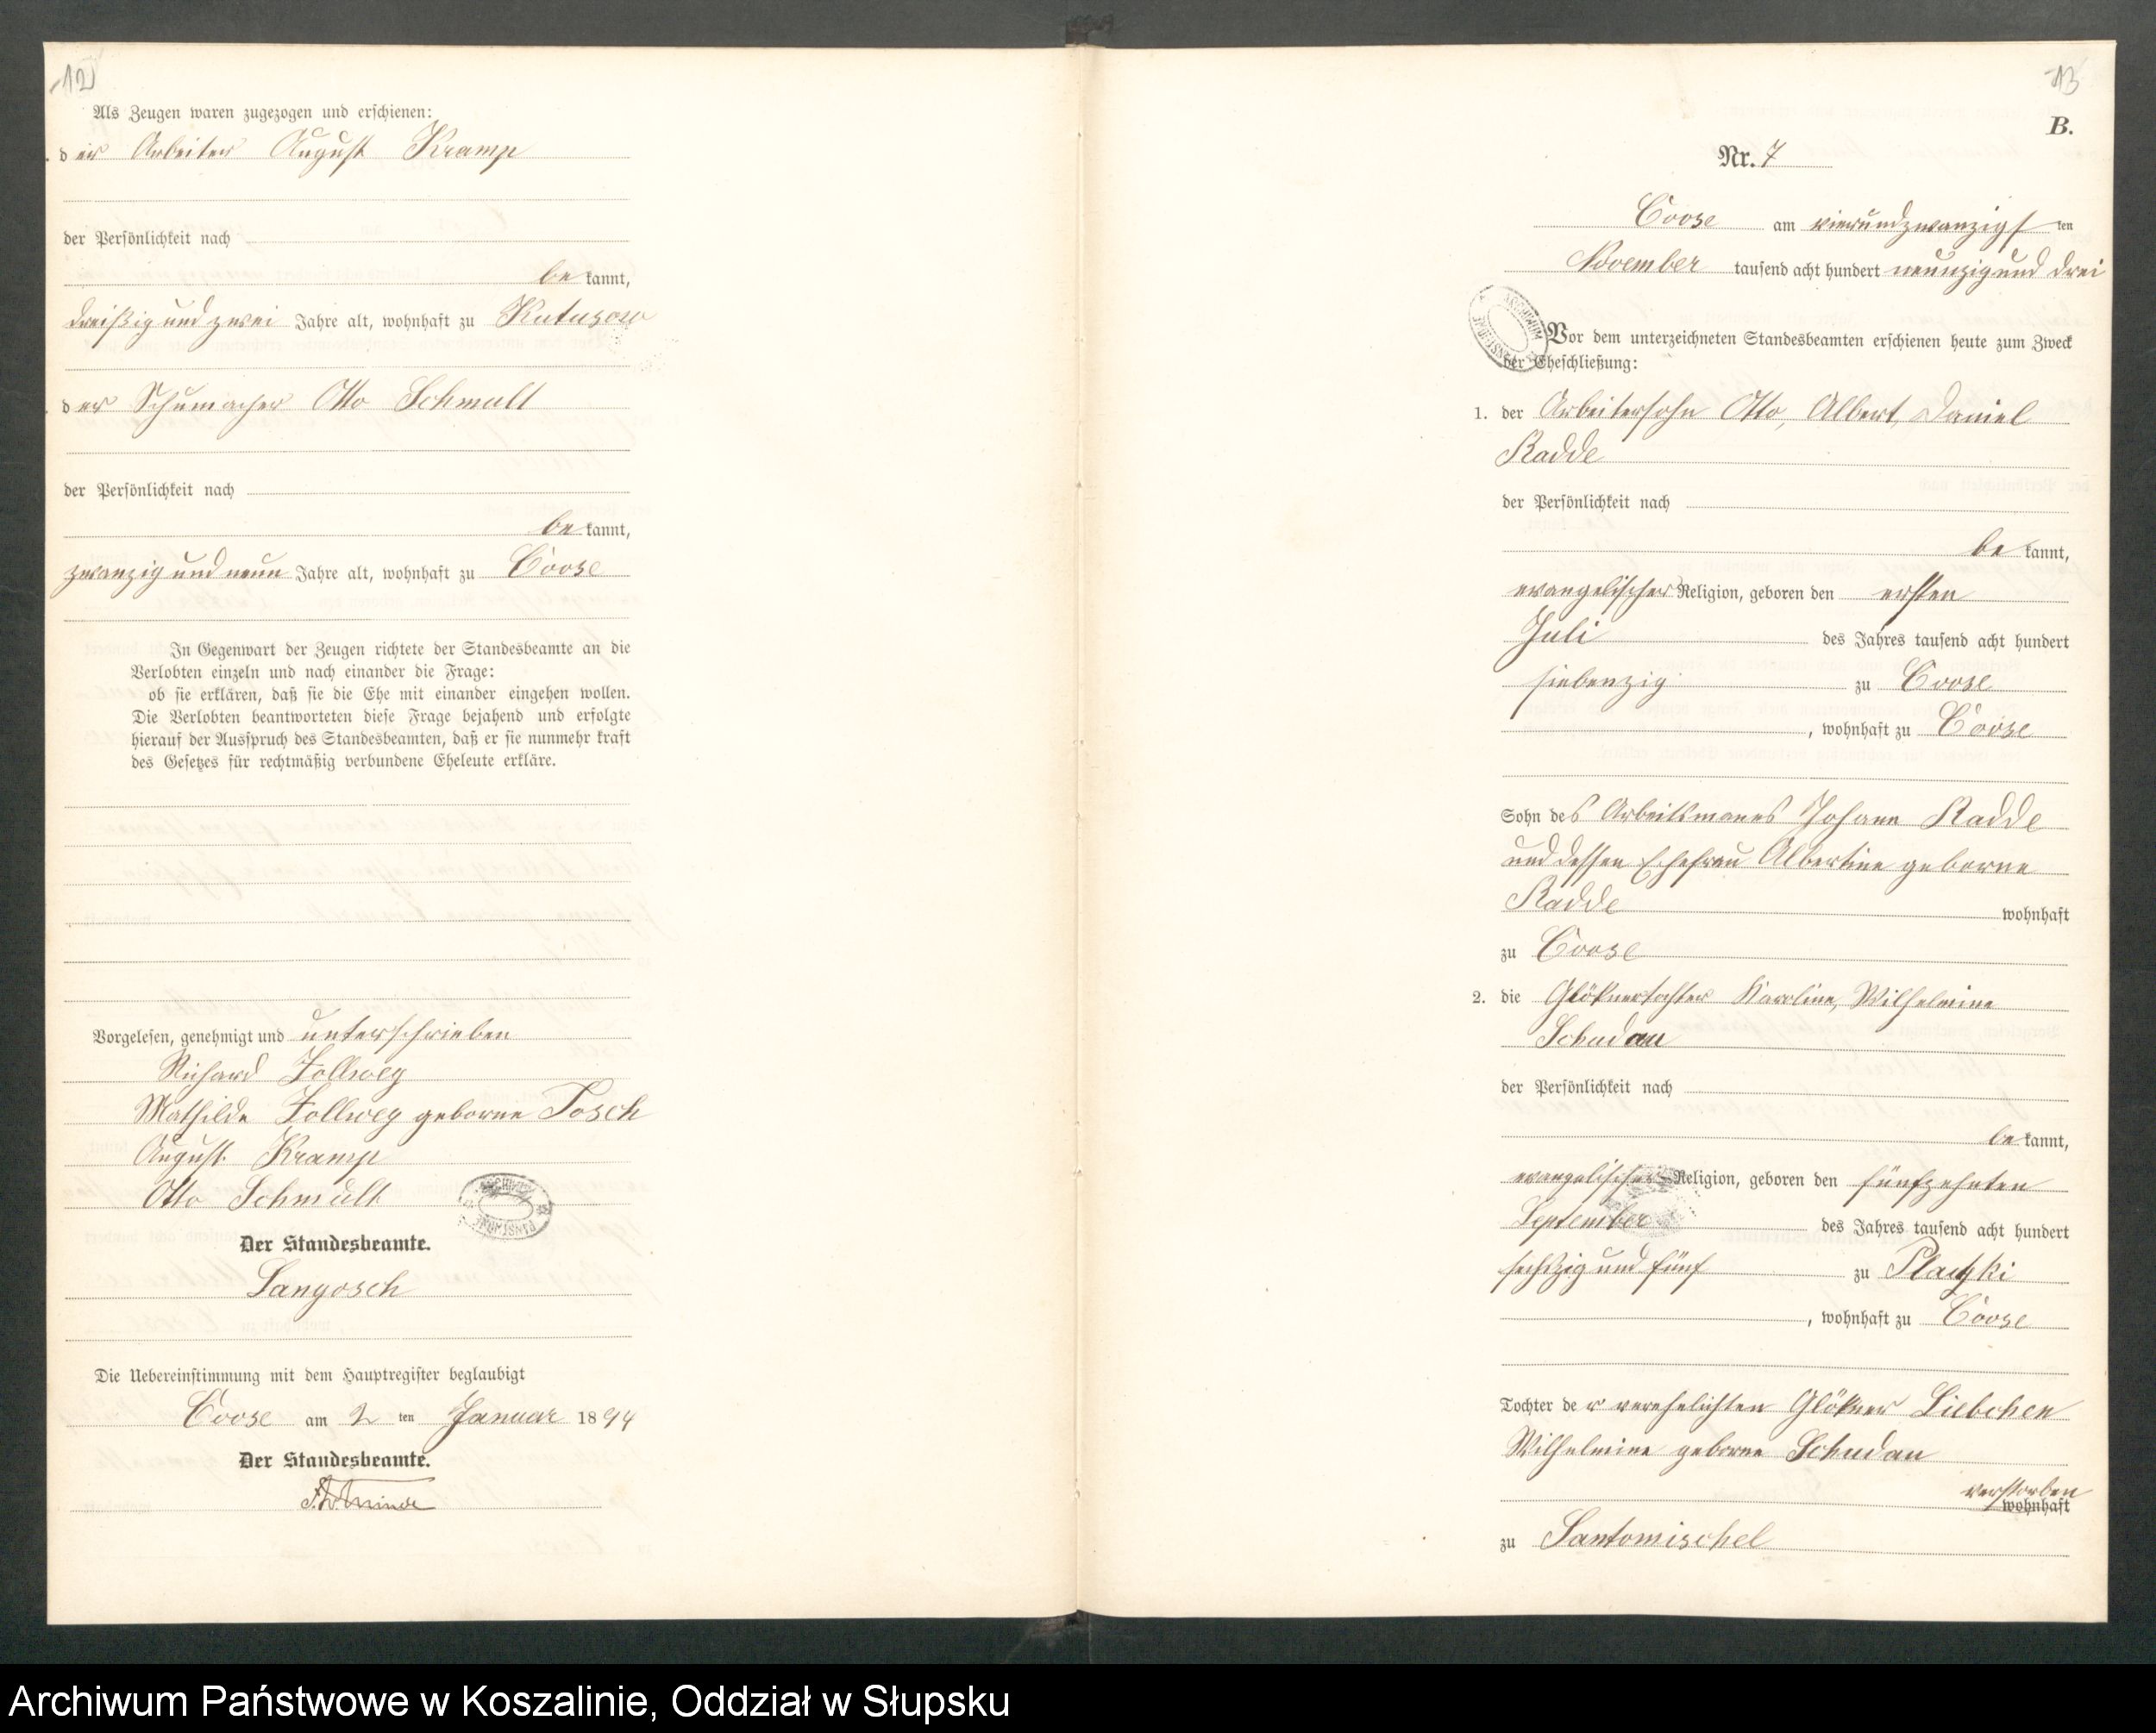 12
Als Zeugen waren zugezogen und erschienen:
der Arbeiter August Kramp
der Persönlichkeit nach
be kannt,
dreißig und zwei Jahre alt, wohnhaft zu Kutusow
der Schumacher Otto Schmalt
der Persönlichkeit nach
be kannt,
zwanzig und neun Jahre alt, wohnhaft zu Coose
In Gegenwart der Zeugen richtete der Standesbeamte an die
Verlobten einzeln und nach einander die Frage:
ob sie erklären, daß sie die Ehe mit einander eingehen wollen.
Die Verlobten beantworteten diese Frage bejahend und erfolgte
hierauf der Ausspruch des Standesbeamten, daß er sie nunmehr kraft
des Gesetzes für rechtmäßig verbundene Eheleute erkläre.
Vorgelesen, genehmigt und unterschrieben
Richard Zollweg
Mathilde Zollweg geborne Posch
August Kramp
Otto Schmalt
Der Standesbeamte.
Langosch
Die Uebereinstimmung mit dem Hauptregister beglaubigt
Coose am 2 ten Januar 1894
Der Standesbeamte.
13
B.
Nr. 7
Coose am vierundzwanzigsten
November tausend acht hundert neunzig und drei
Vor dem unterzeichneten Standesbeamten erschienen heute zum Zweck
der Eheschließung:
1. der Arbeitersohn Otto, Albert, Daniel
Radde
der Persönlichkeit nach
be kannt,
evangelischer Religion, geboren den ersten
Juli des Jahres tausend acht hundert
siebenzig zu Coose
, wohnhaft zu Coose
Sohn des Arbeitsmanns Johann Radde
und dessen Ehefrau Albertine geborne
Radde wohnhaft
zu Coose
2. die Glöknertochter Karoline, Wilhelmine
Schudau
der Persönlichkeit nach
be kannt,
evangelischer Religion, geboren den fünfzehnten
September des Jahres tausend acht hundert
sechszig und fünf zu
, wohnhaft zu Coose
Tochter der verehelichten Glökner Liebchen
Wilhelmine geborne Schudau
verstorben
wohnhaft
zu Santomischel
Archiwum Państwowe w Koszalinie, Oddział w Słupsku